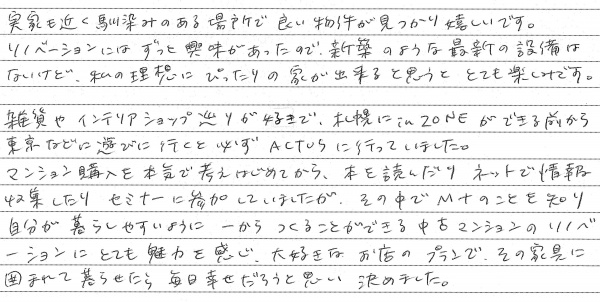 実家も近く馴染みのある場所で良い物件が見つかり嬉しいです。
リノベーションにはずっと興味があったので、新築のような最新の設備は
ないけど、私の理想にぴったりの家が出来ると思うと とても楽しみです。
雑貨や インテリアショップ巡りが好きで、札幌に in ZONE ができる前から
東京などに遊びに行くと必ず ACTUS に行っていました。
マンション購入を本気で考えはじめてから、本を読んだり ネットで情報
収集したり セミナーに参加していましたが、その中で M+のことを知り
自分が暮らしやすいように 一から つくることができる中古マンションのリノベ
ーションにとても魅力を感じ、大好きな お店の プランで、その家具に
囲まれて暮らせたら 毎日幸せだろうと思い 決めました。